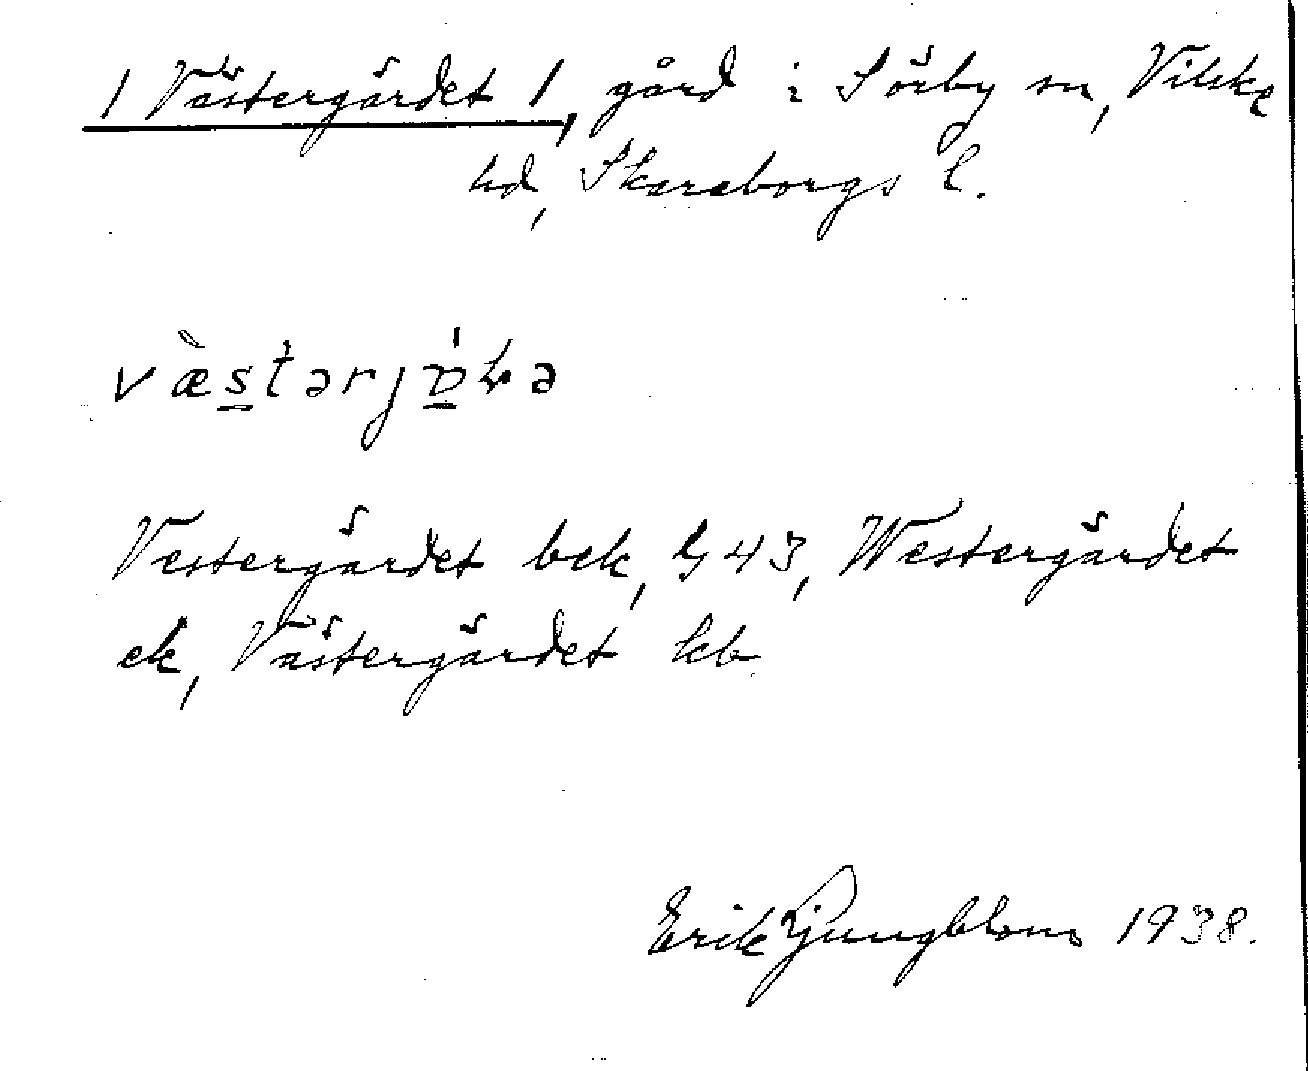 / Västergärdet /, gård i Sörby sn, Vilske
hd, Skaraborgs l.
Vestergärdet bek, G 43, Westergärdet
ek, Västergärdet kb
Erik Ljungblom 1938.